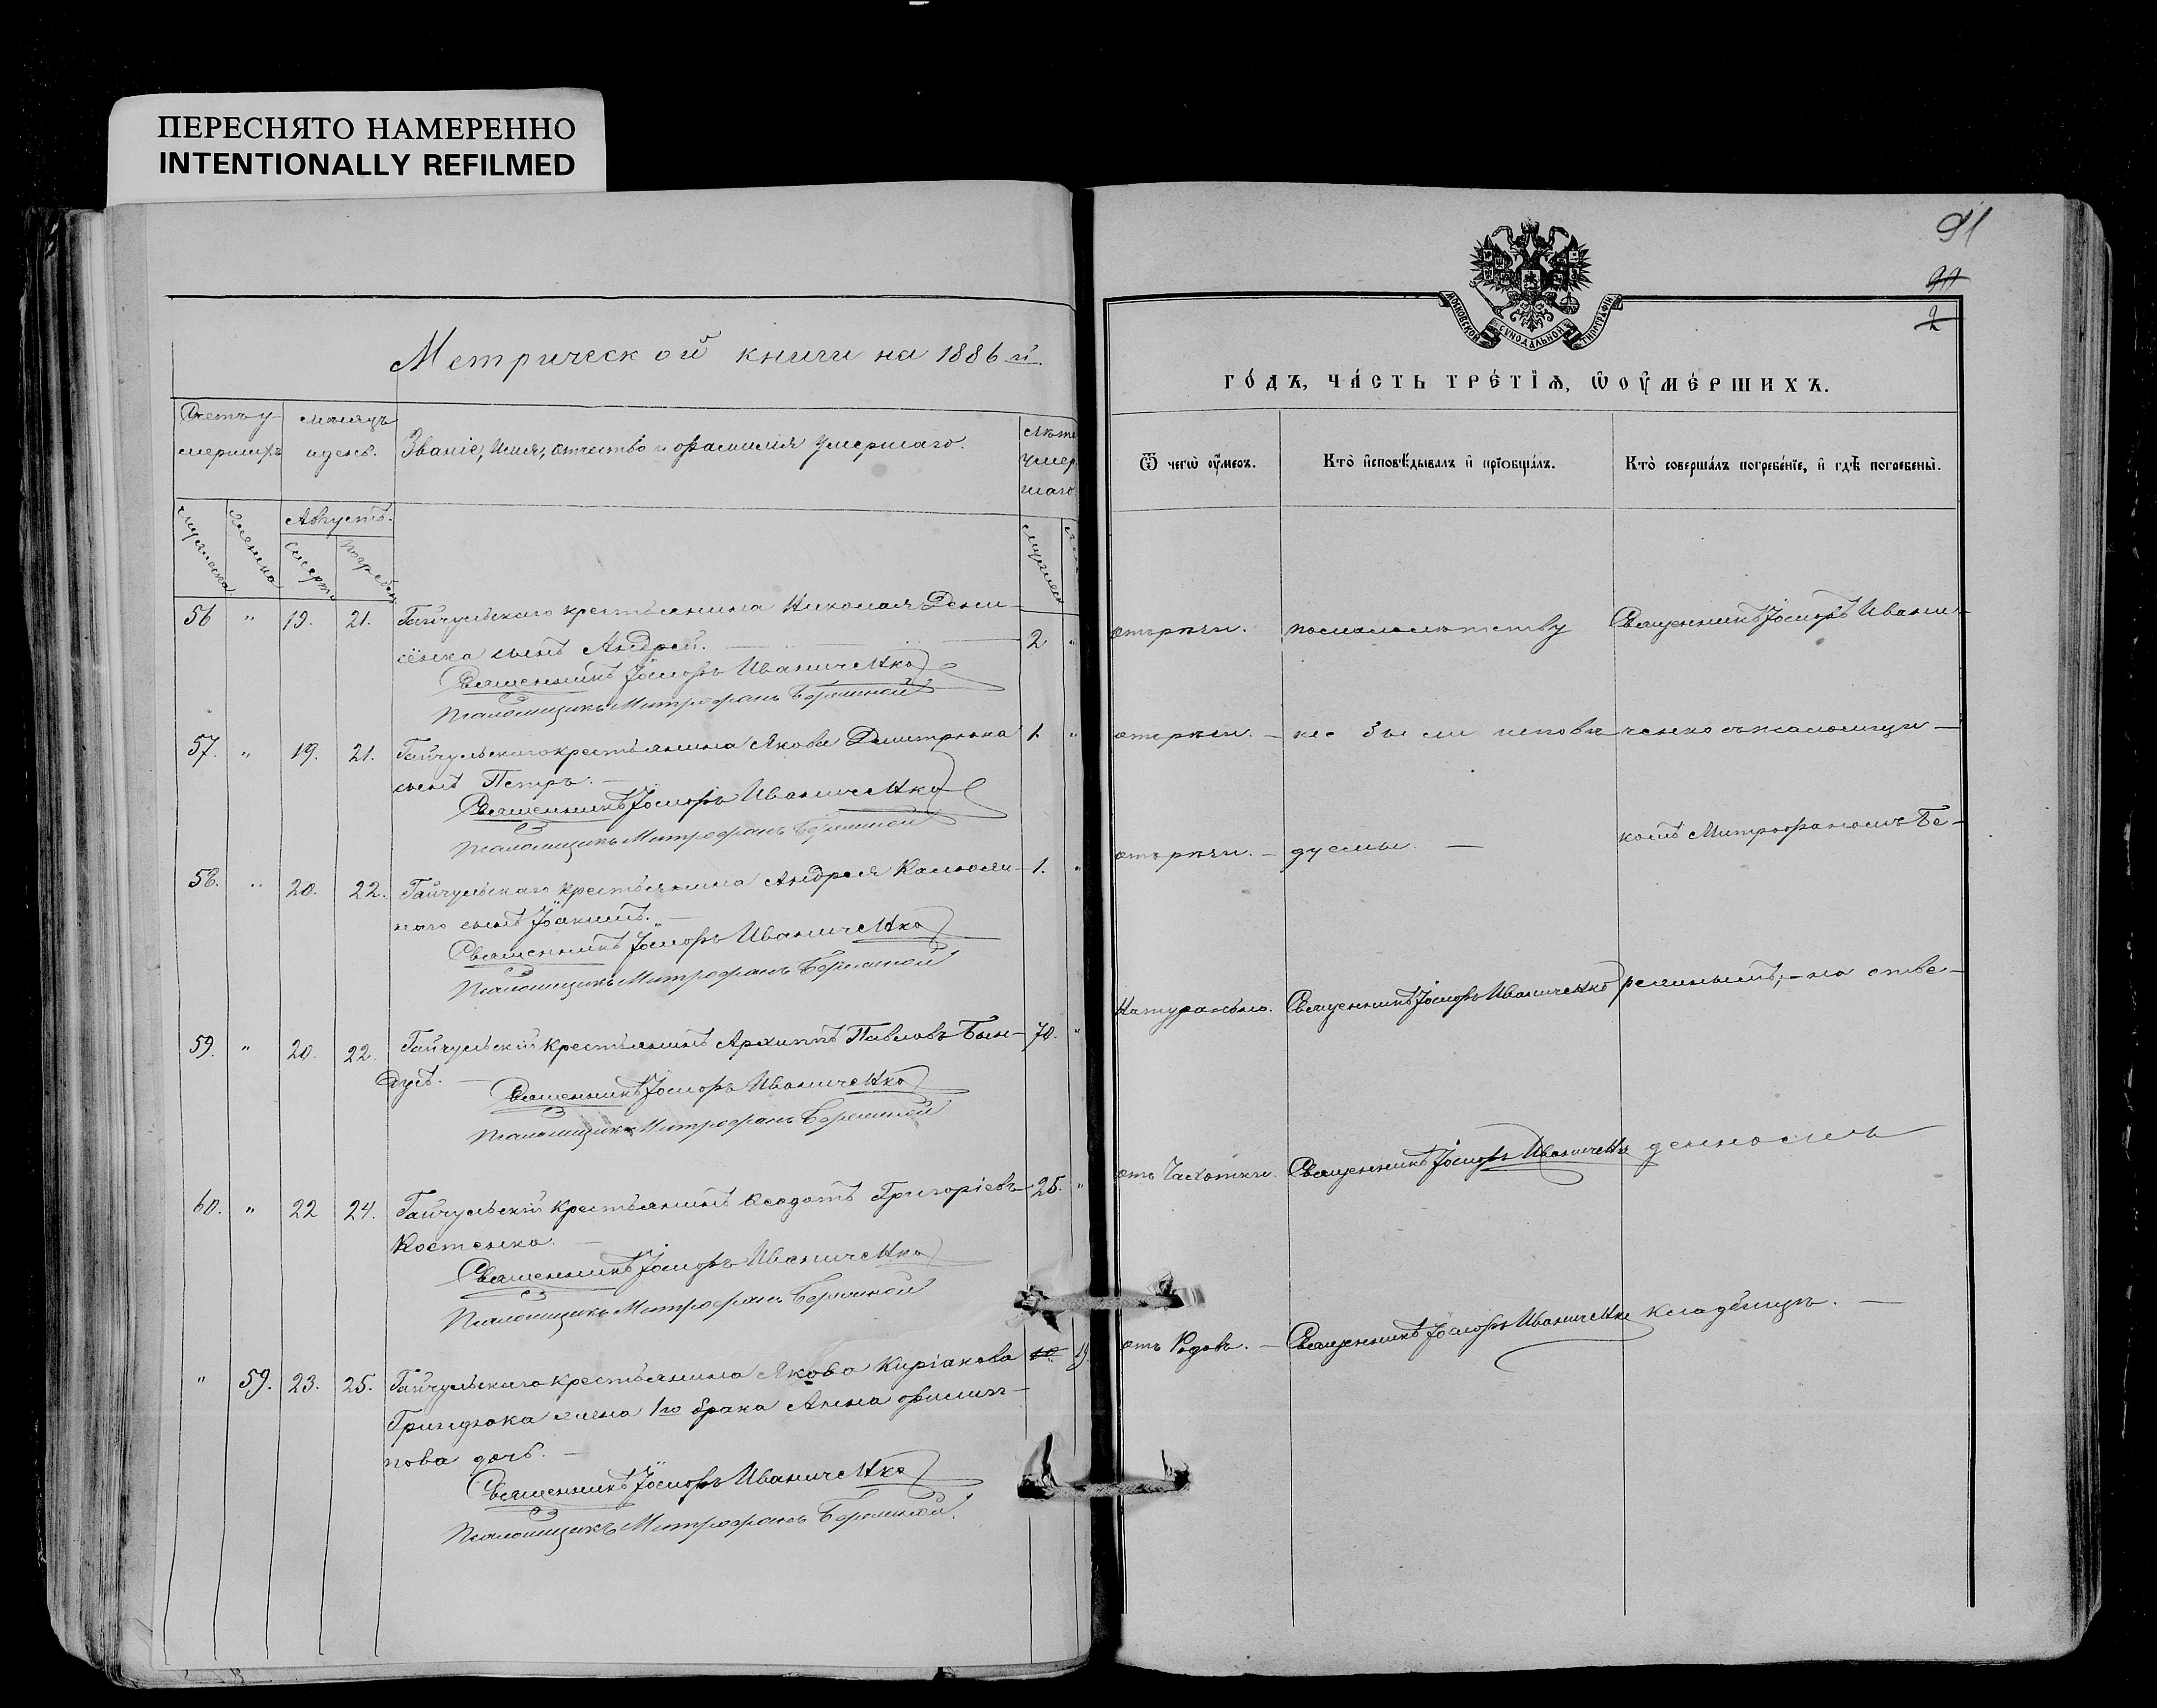 ПЕРЕСНЯТО НАМЕРЕННО
INTENTIONALLY REFILMED
91
2
МОСКОВСКОЙ СѴНОДАЛЬНОЙ ТИПОГРАФІИ
Метрической книги на 1886 й.
го́дъ, ча́сть тре́тїѧ, ѡ оу҆ме́ршихъ.
Счетъ у-
мершихъ
мѣсяцъ
и день.
Званіе, Имя, отчество и фамилія умершаго.
Лѣта
умер
шаго
Ѿ чегѡ̀ оу҆́меръ.
Кто̀ и҆сповѣ́дывалъ и҆ прїѡбща́лъ.
Кто̀ соверша́лъ погребе́нїе, и҆ гдѣ̀ погребены̀.
мужеска
женска
Августъ.
смерти
погребен
мужеска
56 " 19. 21. Гайчульскаго крестьянина Николая Дени-
сенка сынъ Андрей. — 2 "
Священникъ Іосифъ Иваниченко
Псаломщикъ Митрофанъ Бережной
отъ рѣчи. по малолѣтству Священникъ Іосифъ Ивани-
57. " 19. 21. Гайчульскаго крестьянина Якова Дмитрюка 1. "
сынъ Петръ. —
Священникъ Іосифъ Иваниченко
Псаломщикъ Митрофанъ Бережной
не были исповѣ- ченко съ псаломщи-
58. " 20. 22. Гайчульскаго крестьянина Андрея 1. "
сынъ Іоакимъ. —
Священникъ Іосифъ Иваниченко
Псаломщикъ Митрофанъ Бережной
дуемы. — комъ Митрофаномъ Бе-
59. " 20. 22. Гайчульскій крестьянинъ Архиппъ Павловъ Бон- 70. "
дусъ. —
Священникъ Іосифъ Иваниченко
Псаломщикъ Митрофанъ Бережной
Натурально. Священникъ Іосифъ Иваниченко режнымъ; — на отве-
60. " 22 24. Гайчульскій крестьянинъ Ѳеодотъ Григоріевъ 25. "
Костенко. —
Священникъ Іосифъ Иваниченко
Псаломщикъ Митрофанъ Бережной
отъ Чахотки. Священникъ Іосифъ Иваниченко денномъ
" 59. 23. 25. Гайчульскаго крестьянина Якова Киріакова
Гриндюка жена 1го брака Анна Филип-
пова дочь. —
Священникъ Іосифъ Иваниченко
Псаломщикъ Митрофанъ Бережной.
отъ Родовъ. — Священникъ Іосифъ Иваниченко кладбищѣ. —